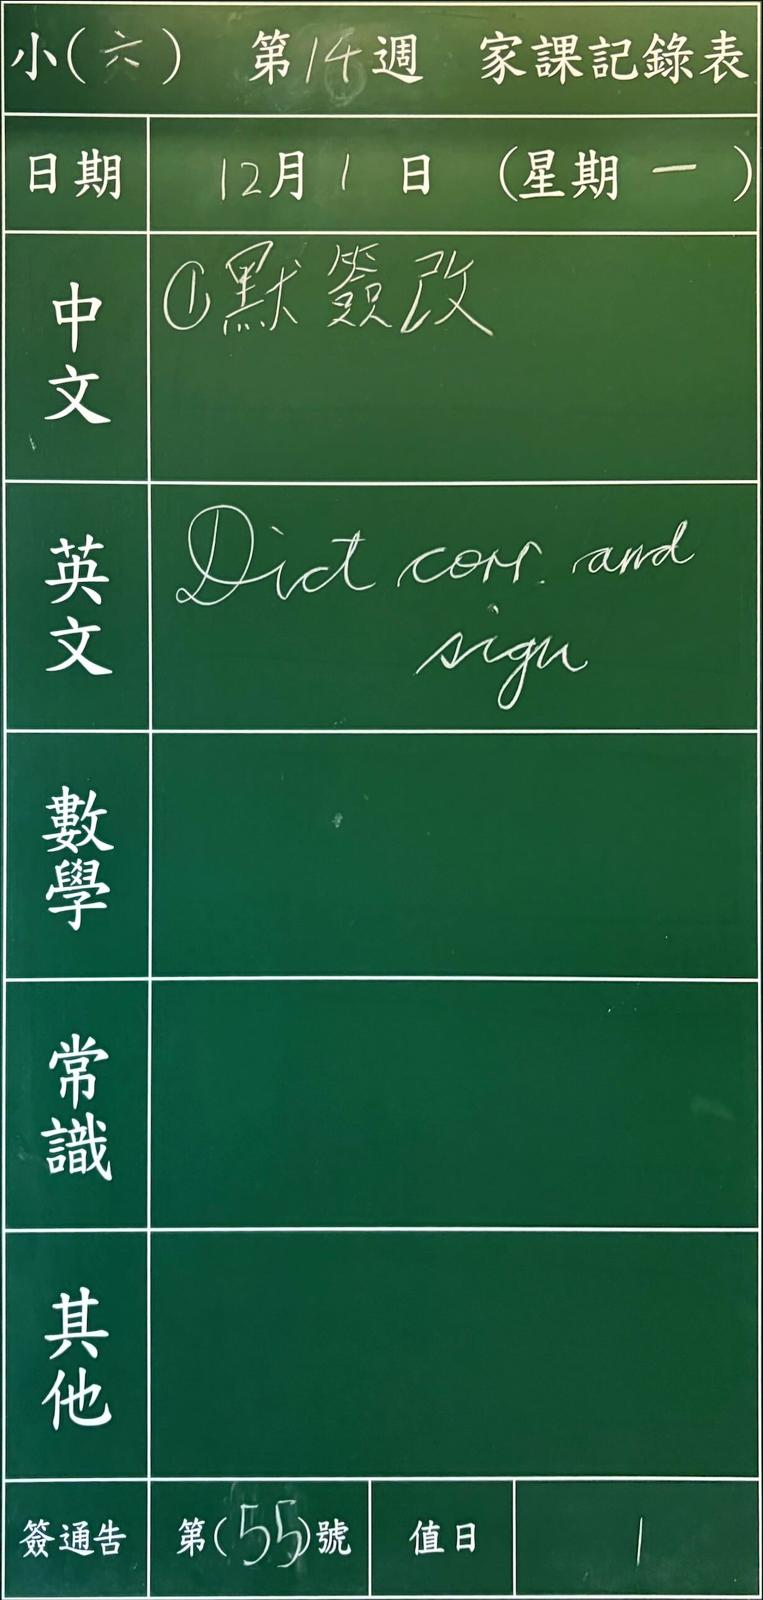 小(六) 第14週 家課記錄表
日期 12月1日 (星期一)
中文 ①默簽改
英文 Dict corr. and
sign
數學
常識
其他
簽通告 第(55)號 值日 1